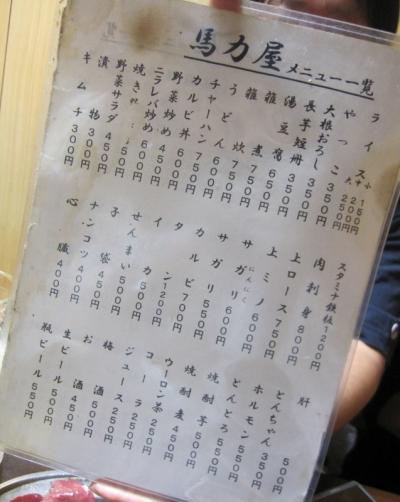 馬力屋 メニュー一覧
ライス 小 150円
中 200円
大 250円
やっこ 350円
大根おろし 350円
長芋短冊 350円
湯豆腐 650円
雑煮 700円
雑炊 750円
うどん 600円
チャーハン 750円
カルビ丼 600円
野菜炒め 600円
ニラレバ炒め 450円
焼き
野菜サラダ 450円
漬物 300円
キムチ 300円
スタミナ鉄板 1200円
肉刺身 800円
上ロース 750円
上ミノ 600円
にんにく
サガリ 600円
サガリ 550円
カルビ 700円
タン 1200円
イカ 500円
せんまい 500円
子袋 450円
ナンコツ 400円
心臓 400円
肝 500円
とんちゃん 350円
ホルモン 550円
とんとろ 550円
焼酎芋 500円
焼酎麦 450円
ウーロン茶 250円
コーラ 250円
ジュース 250円
梅酒 500円
お酒 450円
生ビール 500円
瓶ビール 550円